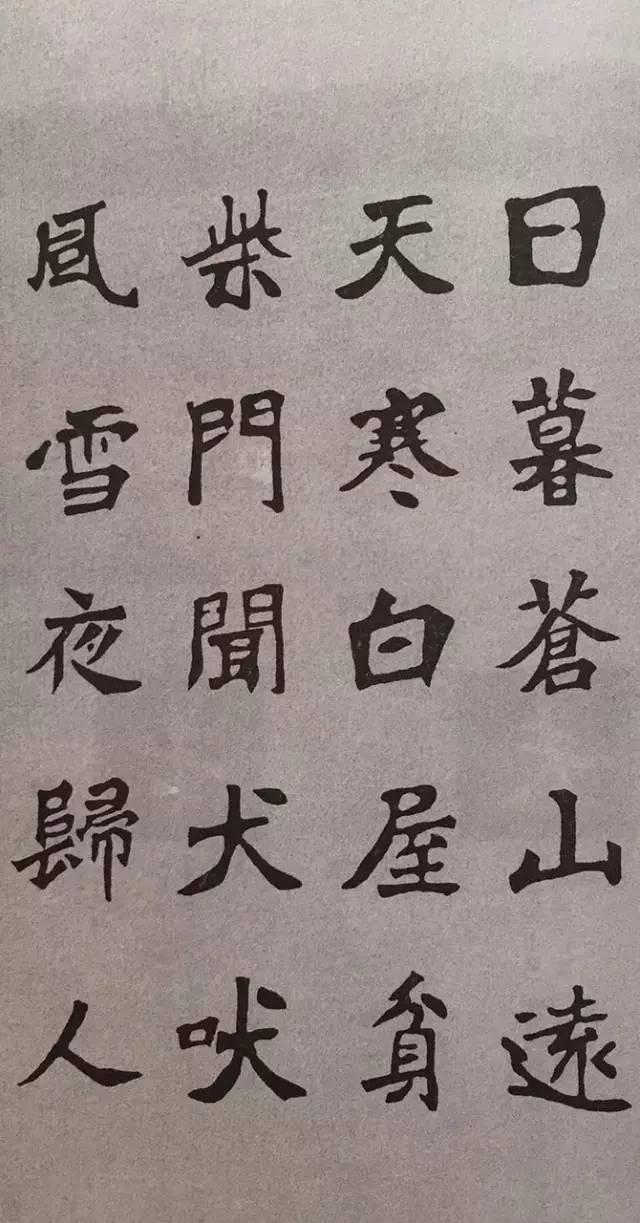 日暮蒼山遠
天寒白屋貧
柴門聞犬吠
風雪夜歸人